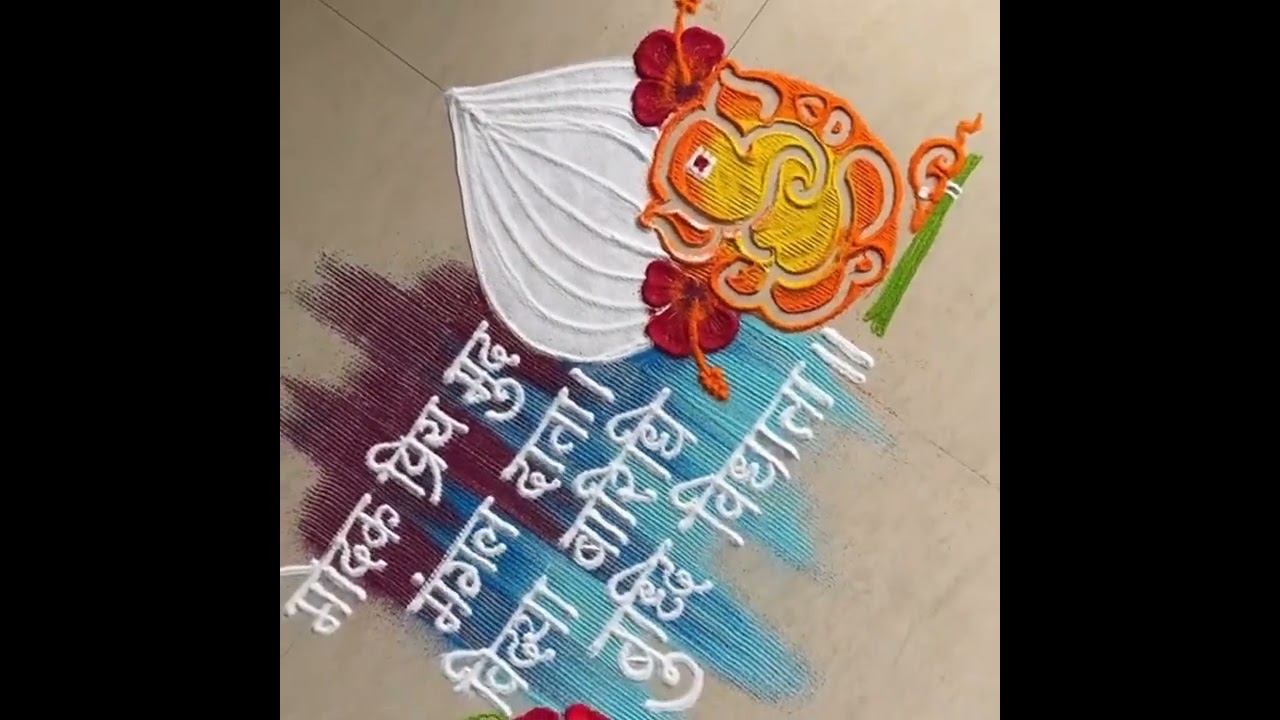 मोदक प्रिय मुद
मंगल दाता।
विद्या वारिधि
बुद्धि विधाता॥